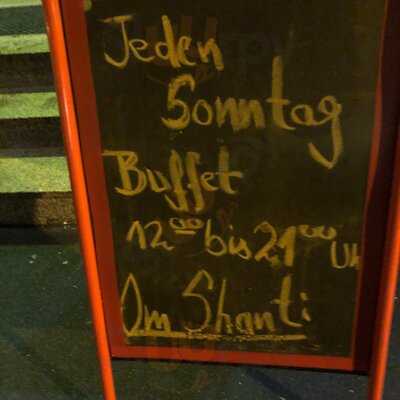 Jeden
Sonntag
Buffet
12⁰⁰ bis 21⁰⁰ Uh
Om Shanti